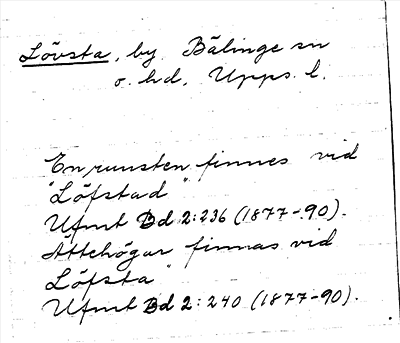 Lövsta, by, Bälinge sn
o. hd, Upps. l.
En runsten finnes vid
"Löfstad"
Ufmt Bd 2:236 (1877-90).
Ättehögar finnas vid
Löfsta"
Ufmt Bd 2:240 (1877-90).